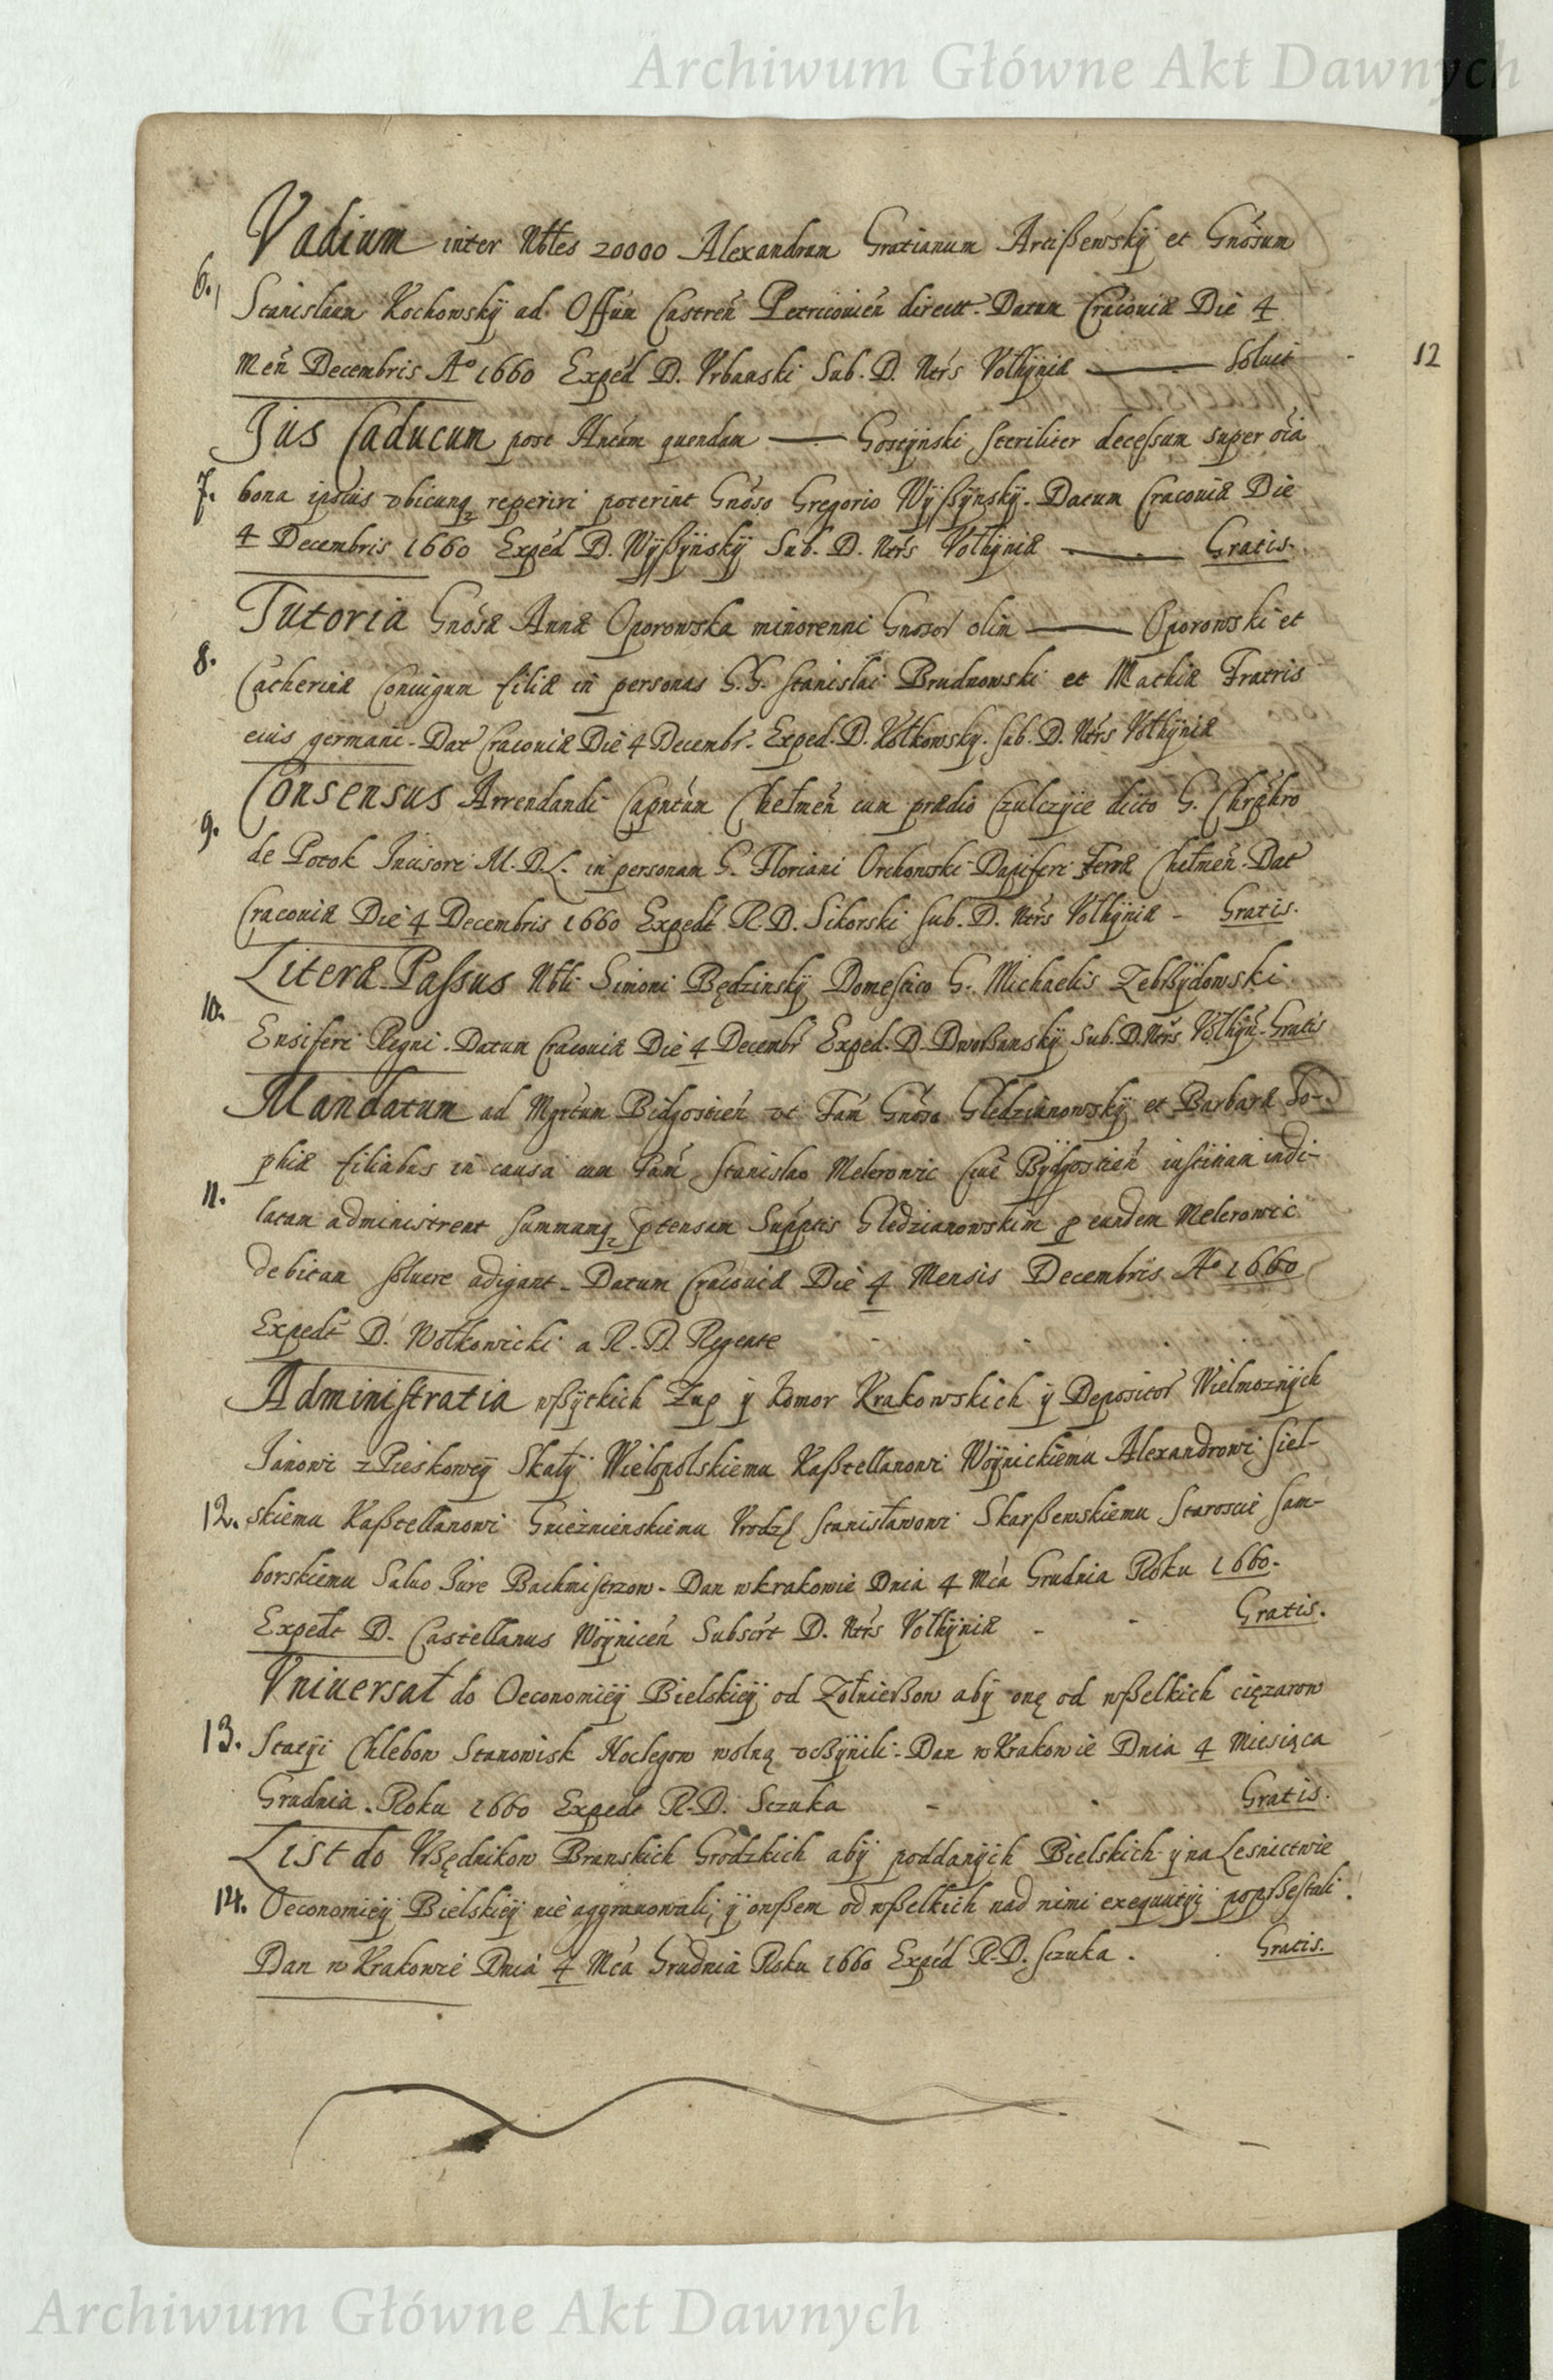 Archiwum Główne Akt Dawnych
Vadium inter Nbłes 20000 Alexandrum Gratianum Arcißewskÿ et Gnosum
6. Stanislaum Kochowskÿ ad Offūm Castren̄ Petricouien̄ direct. Datum Cracouiæ Die 4
Men̄ Decembris Aº 1660 Exped D. Vrbanski Sub. D. Ntrs Volhÿniæ — Soluit - 12
Jus Caducum post Ancūm quendam — Gostÿnski steriliter decessum super oīa
7. bona ipsius vbicunq reperiri poterint Gnoso Gregorio Wÿßÿnskÿ. Datum Cracouiæ Die
4 Decembris 1660 Exped D. Wÿßÿnskÿ Sub. D. Ntrs Volhÿniæ — Gratis.
Tutoria Gnosæ Annæ Oporowska minorenni Gnosor olim — Oporowski et
8. Catherinæ Coniugum filiæ in personas G.G. Stanislai Brudnowski et Mathiæ Fratris
eius germani. Dat Cracouiæ Die 4 Decembr. Exped. D. Kołkowskÿ. Sub. D. Ntrs Volhÿniæ
Consensus Arrendandi Capntūm Chełmen̄ cum prædio Czulczÿce dicto G.
9. de Potok Incisori M.D.L. in personam G. Floriani Orchowski Dapiferi Terræ Chełmen̄. Dat
Cracouiæ Die 4 Decembris 1660 Expedt R.D. Sikorski Sub. D. Ntrs Volhÿniæ - Gratis.
Literæ Passus Nbli Simoni Będzinskÿ Domestico G. Michaelis Zebrßÿdowski
10. Ensiferi Regni. Datum Cracouiæ Die 4 Decembr Exped. D. Dworßanskÿ Sub. D. Ntrs Volhÿn̄. Gratis
Mandatum ad Mgrtum Bidgostien̄ vt Fam̄ Gnosa Gledzianowskÿ et Barbaræ So-
phiæ filiabus in causa cum Fam̄ Stanislao Melerowic Ciue Bÿdgostien̄ iustitiam indi-
11. latam administrent summamq ptensam Supptis Gledzianowskim p eundem Melerowic
debitam soluere adigant. Datum Cracouiæ Die 4 Mensis Decembris Aº 1660
Expedt D. Wołkowicki a R. D. Regente
Administratia wßÿtkich Zup ÿ Komor Krakowskich ÿ Depositor Wielmoznÿch
Janowi z Pieskoweÿ Skałÿ Wielopolskiemu Kaßtellanowi Woÿnickiemu Alexandrowi Siel-
12. skiemu Kaßtellanowi Gnieznienskiemu Vrodz Stanisławowi Skarßewskiemu Staroscie Sam-
borskiemu Saluo Jure Bachmistrzow. Dan w krakowie Dnia 4 Mca Grudnia Roku 1660.
Expedt D. Castellanus Woÿnicen̄ Subscrt D. Ntrs Volhÿniæ - - Gratis.
Vniuersał do Oeconomieÿ Bielskieÿ od Zołnierßow abÿ onę od wßelkich cięzarow
13. Statÿi Chlebow Stanowisk Noclegow wolną vcßÿnili. Dan w Krakowie Dnia 4 Miesiąca
Grudnia. Roku 1660 Expedt R.D. Sczuka - - Gratis.
List do Vrßędnikow Branskich Grodzkich abÿ poddanÿch Bielskich ÿ na Lesnictwie
14. Oeconomieÿ Bielskieÿ nie aggrauowali, ÿ owßem od wßelkich nad nimi exequutÿi poprßestali.
Dan w Krakowie Dnia 4 Mca Grudnia Roku 1660 Exped R.D. Sczuka. . Gratis.
Archiwum Główne Akt Dawnych